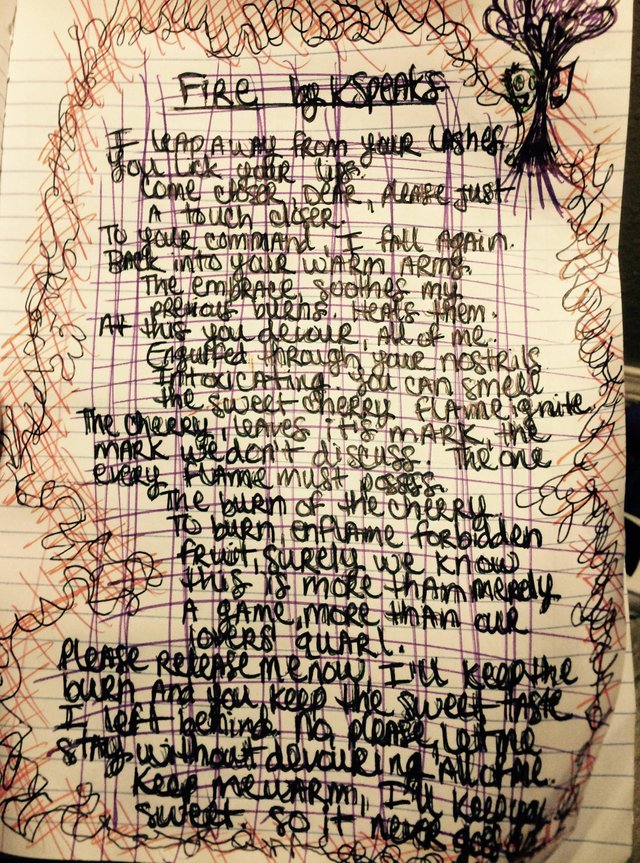 FIRE by KSPEAKS
I leap away from your lashes
You lick your lips.
Come closer Dear, please just
a touch closer.
To your command, I fall again.
Back into your warm arms.
The embrace, soothes my
previous burns. Heals them.
At this you devour, all of me.
Engulfed through your nostrils.
Intoxicating. You can smell
the sweet cherry flame ignite.
The cherry leaves its mark, the
mark we don't discuss. The one
every flame must posses.
The burn of the cherry.
To burn, enflame forbidden
fruit, surely we know
this is more than merely
a game, more than our
lovers quarl.
Please release me now, I'll keep the
burn and you keep the sweet taste
I left behind. No please, let me
stay without devouring all of me.
Keep me warm, I'll keep you
sweet so it never